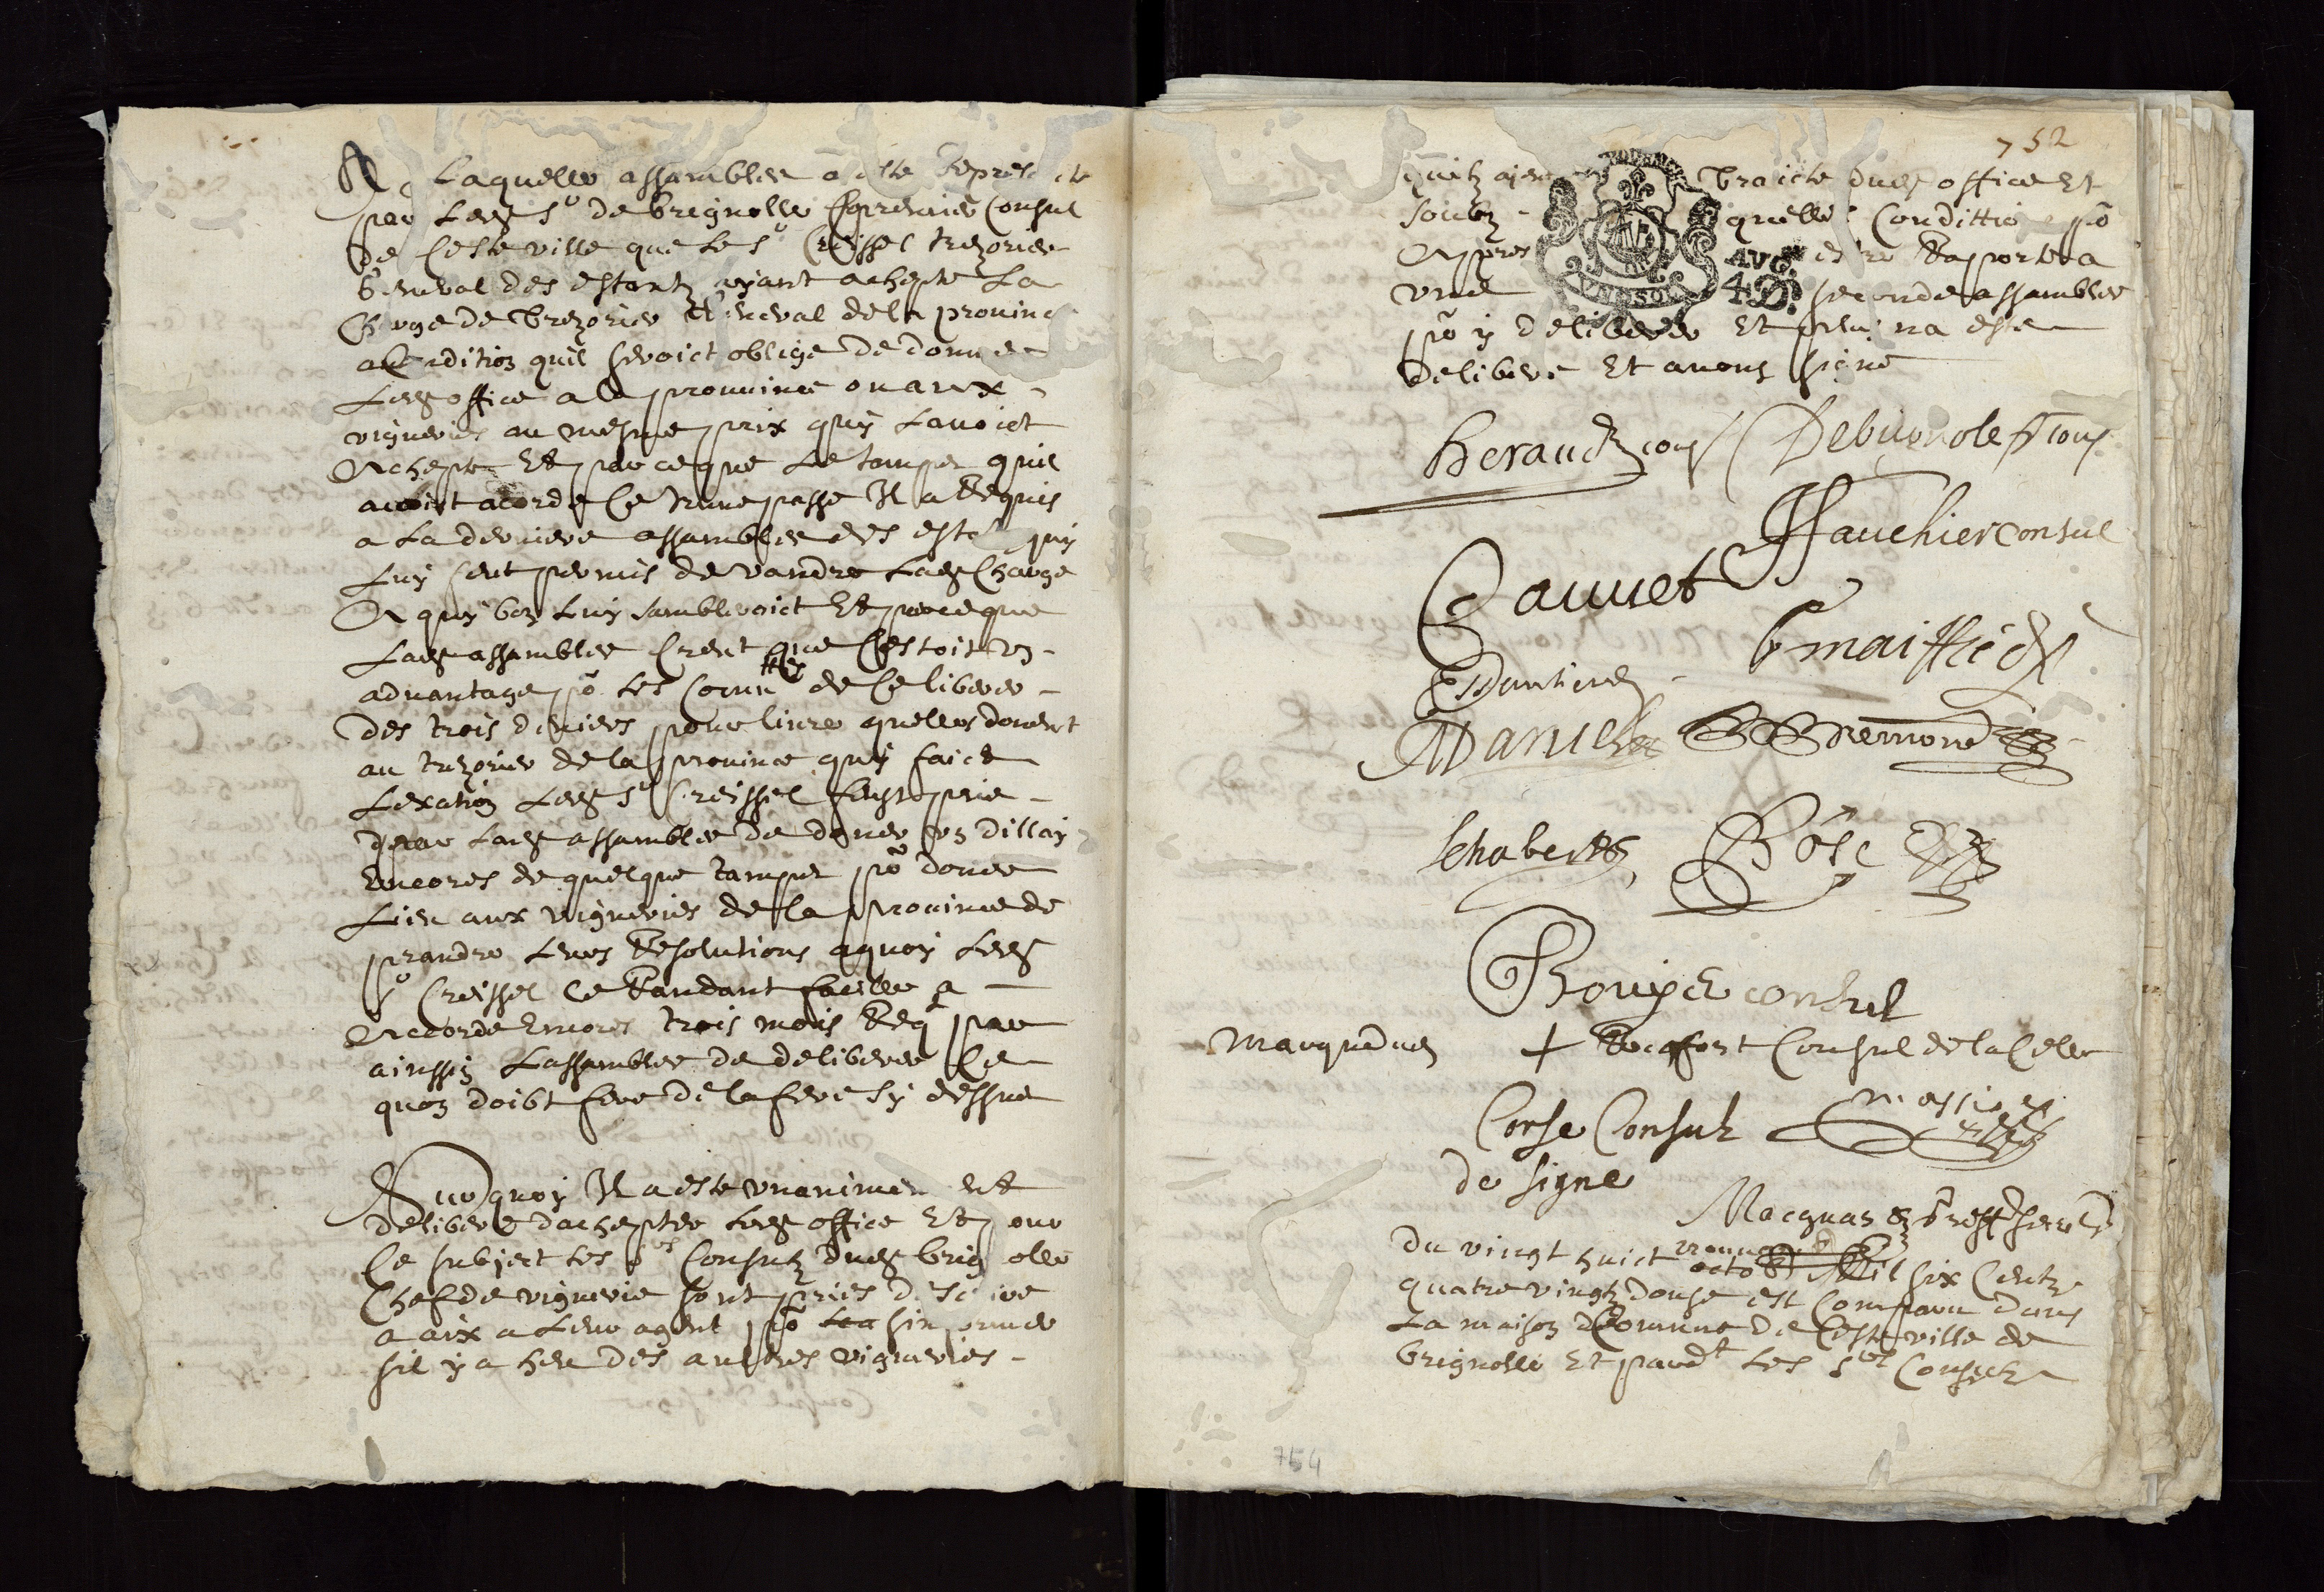 A Laquelle assamblee a este represante
par Ledt Sr de brignolle premier Consul
de Ceste ville que Le Sr Creissel trezorier
General des estantz ayant achepte La
Charge de trezorier General de la province
a Condition quil seroict oblige de donner
Ledt office a la province ou aux
vigueries au mesme prix quy Lavoict
Achepte Et par ce que Le tamps quil
avoict acorde Ce treuve passe Il a Requis
a La derniere assamblee des estatz quy
Luy feut permis de vandre Ladt Charge
A quy bon Luy sambleroict Et par ce que
Ladt assamblee Creut que Cestoit un
advantage po Les Commtes de Ce liberer
des trois deniers pour livre quelles donent
au trezorier de la province quy faict
Lexation Ledt Sr Creissel feust prie
par Ladt assamblee de doner un dillay
Encores de quelque tamps po doner
Lieu aux vigueries de la province de
prandre Leurs Resolutions a quoy Ledt
Sr Creissel Ce Randant facille a
Accorde Encores trois mois Reqt par
ainssin Lassamblee de deliberer Ce
quon doibt fere de lafere sy dessus
Surquoy Il a este unanimement
delibere dachepter Ledt office Et pour
Ce subject Les Srs Consulz dudt brignolle
Chef de viguerie sont pries descrire
a aix a Leur agent po sinformer
sil y a heu des autres vigueries
quilz ayent traicte dudt office Et
soubz quelle Condittion po
Appres estre Raporte a
une seconde assamblee
po y deliberer Et plus na este
delibere Et avons signe
752
AVG
4 D
heraud cons Debrignole p cons
ffauchier consul
Cauvet
Gmaiffredy
Daniel Bremond
Chabert Bosc
Rouyer consul
marque du + Rocafort Consul de la Celle
Corse Consul
de signe
Macquan greff
Du vingt huict octob Mil six Centz
quatre vingtz douse est Comparu dans
La maison Commune de Ceste ville de
brignolle Et pardt Les Srs Consulz
754